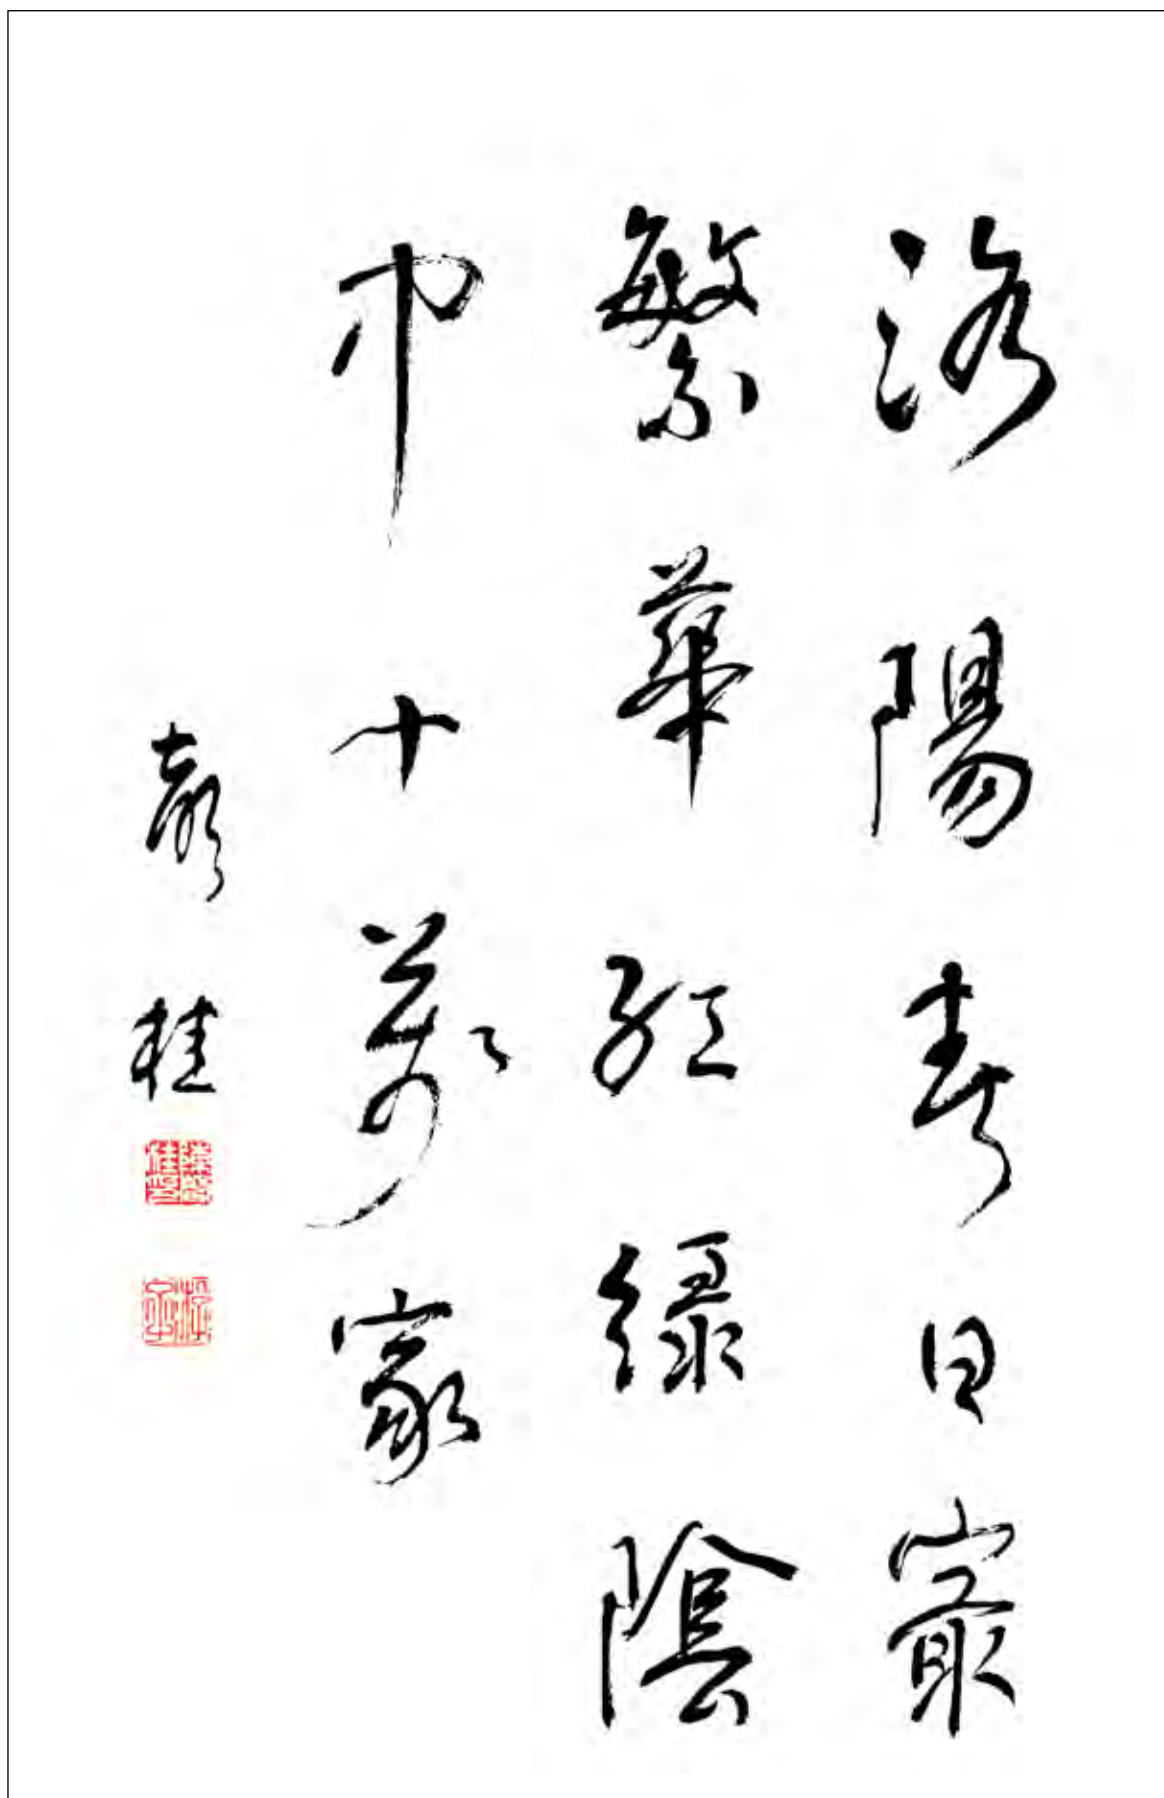 洛陽春日㝡
繁華紅綠陰
中十萬家
桂